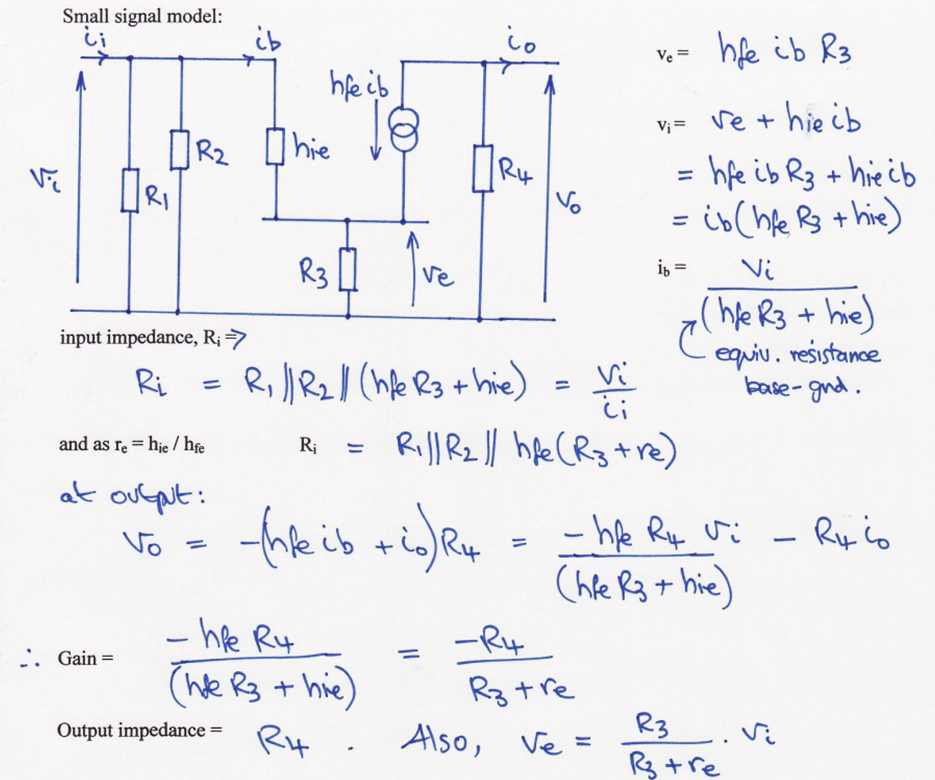 Small signal model:
ii
ib
io
hfe ib
Vi
R1
R2
hie
R4
Vo
R3
ve
ve = hfe ib R3
vi = ve + hie ib
= hfe ib R3 + hie ib
= ib(hfe R3 + hie)
ib = Vi
(hfe R3 + hie)
equiv. resistance
base-gnd.
input impedance, Ri ⇒
Ri = R1 || R2 || (hfe R3 + hie) = Vi / ii
and as re = hie / hfe Ri = R1 || R2 || hfe(R3 + re)
at output:
Vo = -(hfe ib + io)R4 = -hfe R4 Vi / (hfe R3 + hie) - R4 io
∴ Gain = -hfe R4 / (hfe R3 + hie) = -R4 / R3 + re
Output impedance = R4 . Also, ve = R3 / R3 + re . Vi